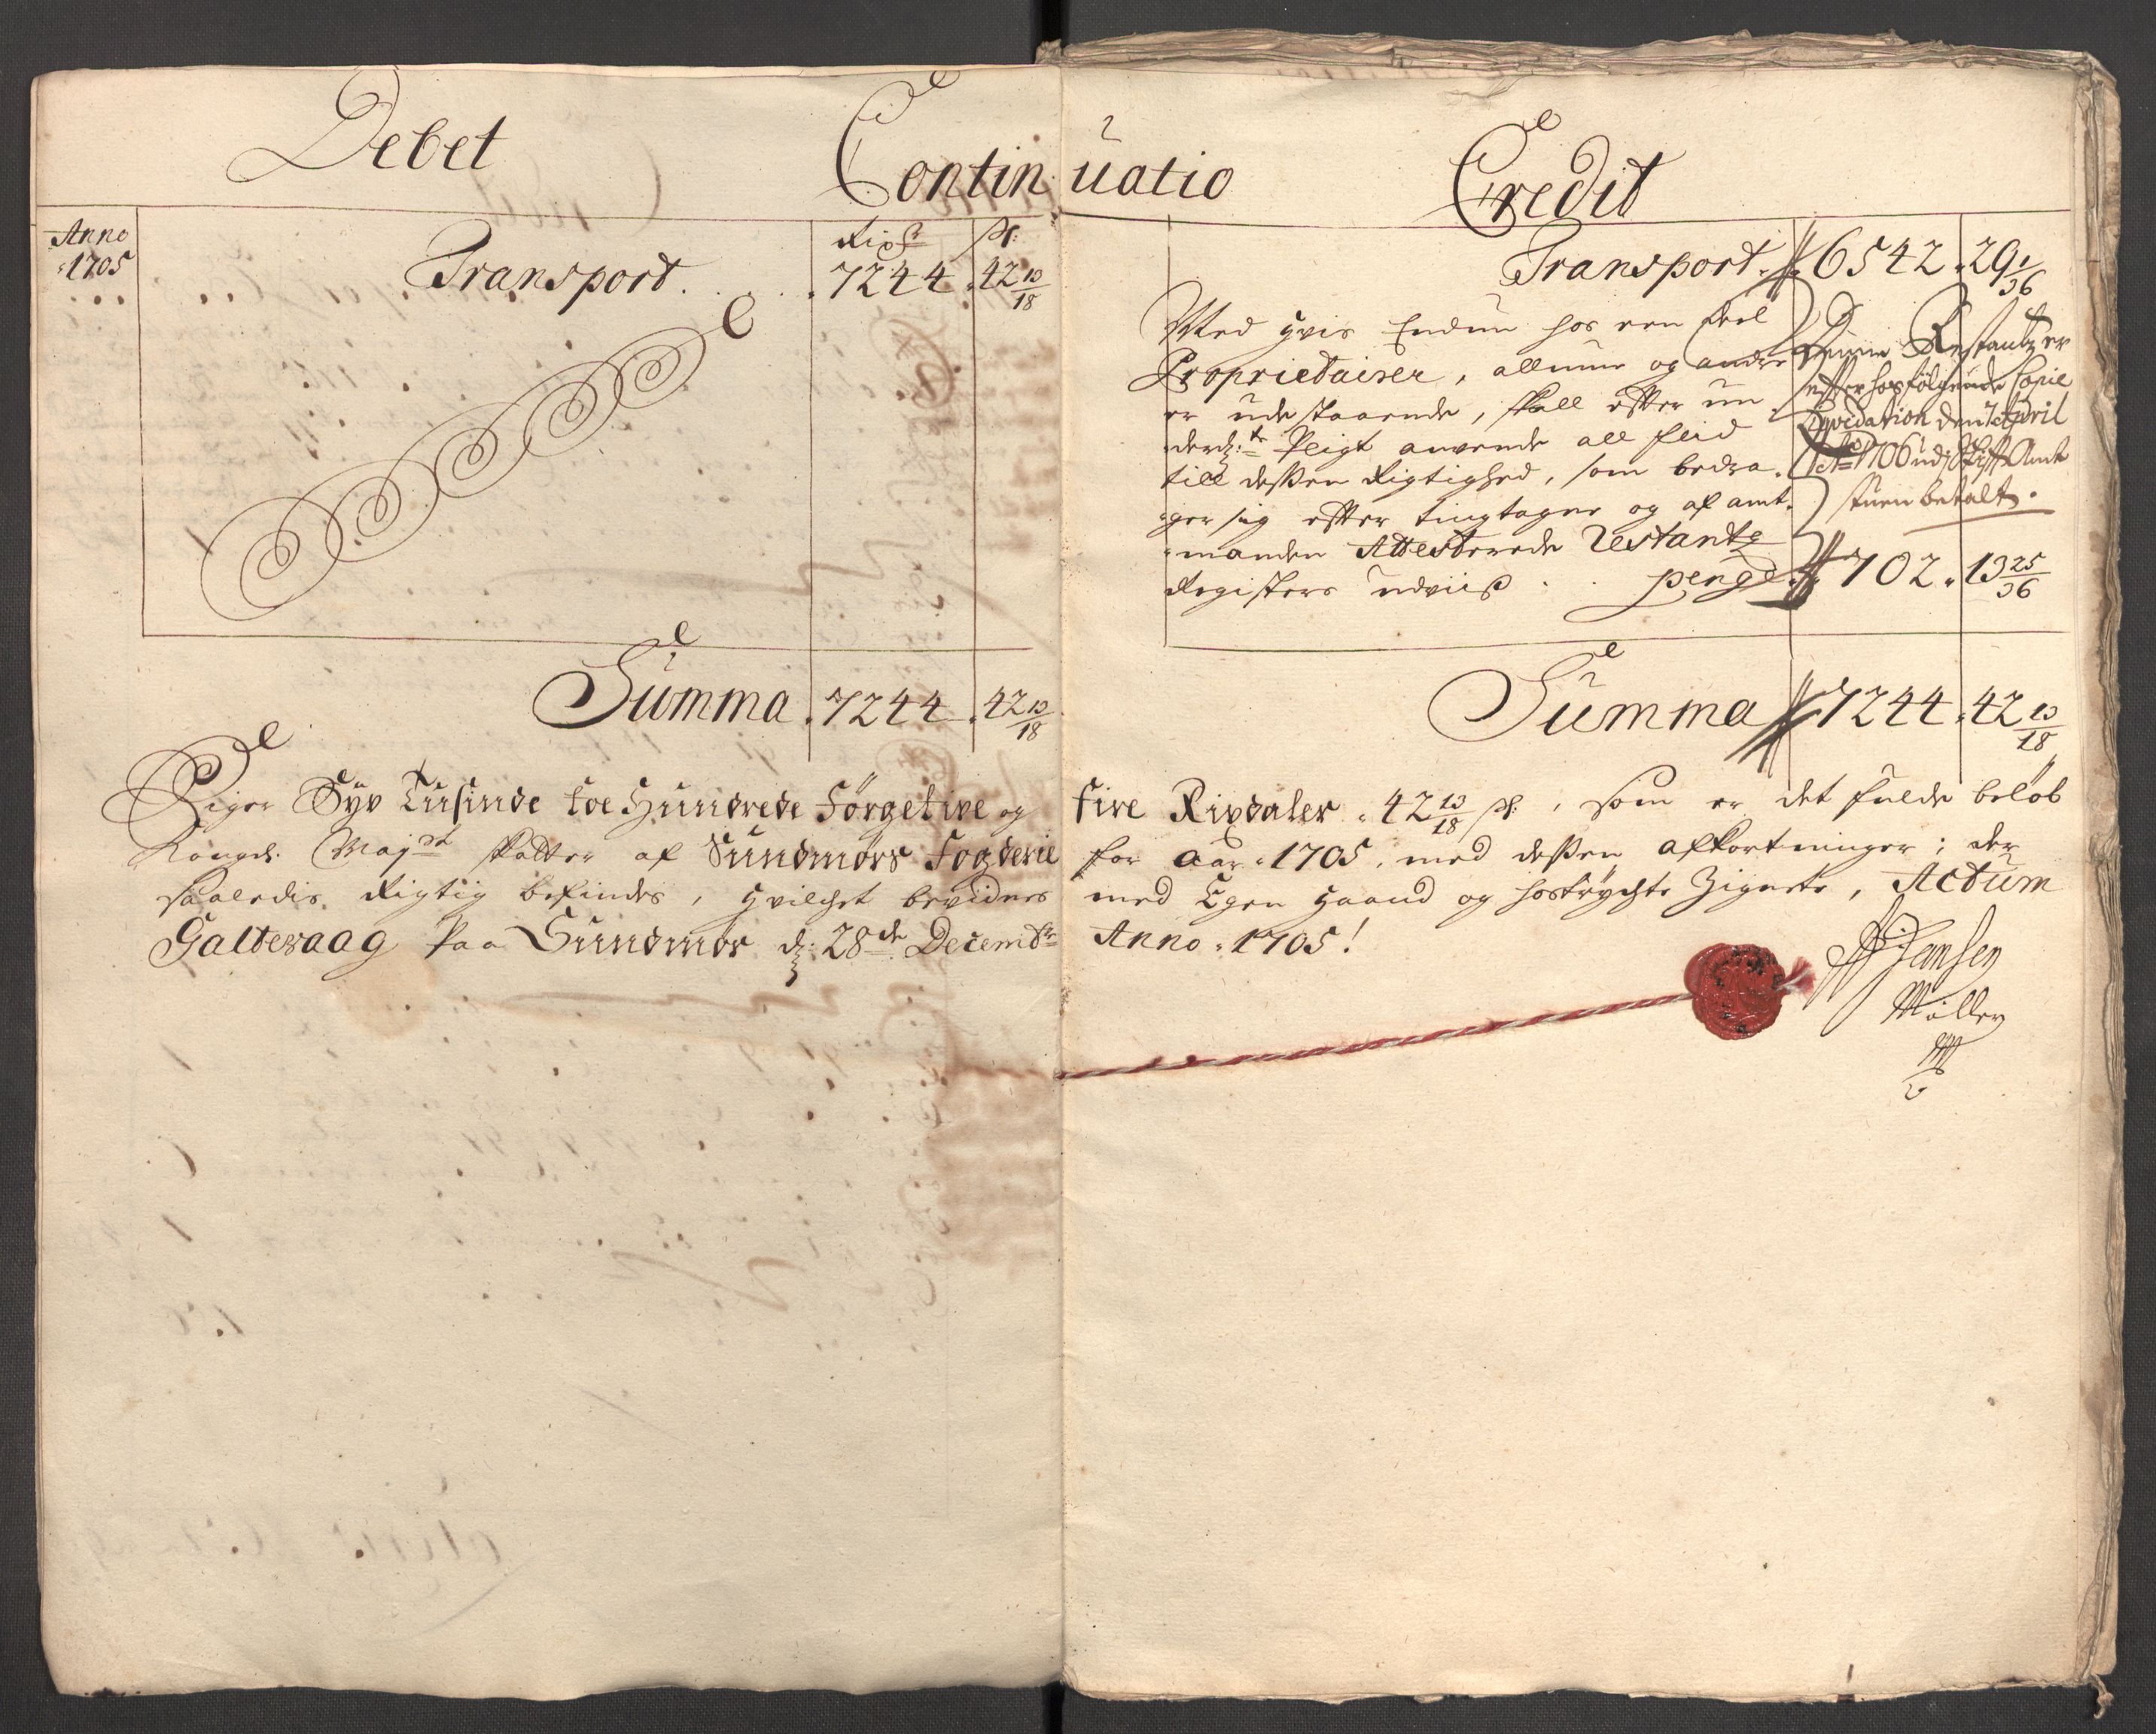 Debet
Continuatio
Credit
Anno
1705
Rixdr
ſk:
Transport. . . . 7244 . 42 13/18
Summa . 7244 . 42 13/18
Transport. 6542 . 29 1/36
Med hvis Endnu hos een deel
Proprietairer, allmue og andre
er udestaaende, skall efter un
derd:te Pligt anvende all flid
till deßen Rigtighed, som bedra
ger sig efter tingtagne og af amt
manden Attesterede Restantz
Registers udviiß . . penge 702 . 13 25/36
Denne Restantz er
efter hosfølgende Copie
Qvidation den 7 April
Ao 1706 udj Stift Amt
stuen betalt.
Summa 7244 . 42 13/18
Siger Syv Tusinde toe Hundrede Förgetive og fire Rixdaler . 42 13/18 ſk: , som er det fulde beløb
Kongl. Majst skatter af Sundmørs Fogderie for Aar 1705, med deßen afkortninger; der
saaledis Rigtig befindes, hvilchet bevidnes med Egen haand og hostrychte Zignete, Actum
Galteraag paa Sundmør d: 28de Decembr Anno 1705!
Jansen
Möller